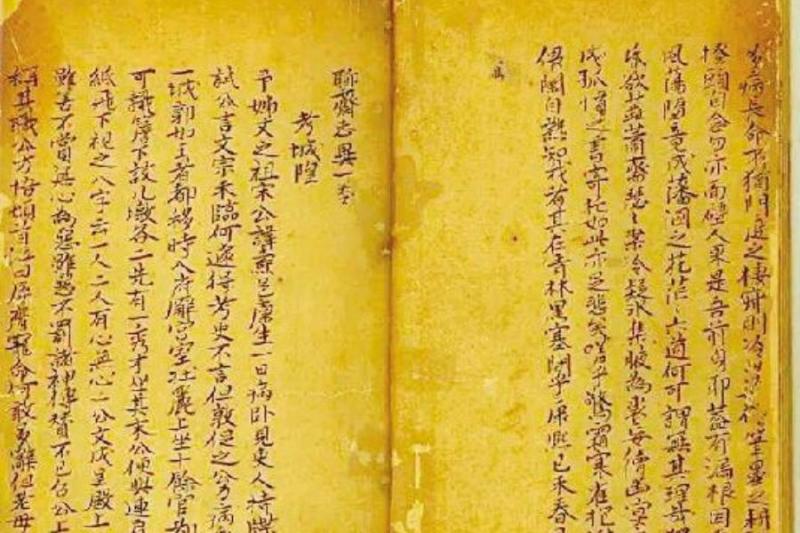 病長命不猶門庭之棲寂則冷淡僧筆墨之耕
搔頭自念勿亦面壁人果是吾前身耶蓋有漏根因
風蕩墮竟成藩溷之花茫〻六道何可謂無其理哉
昏欲蕊蕭齋瑟〻案冷疑冰集腋為裘妄續幽冥
成孤憤之書寄托如此亦足悲矣嗟乎驚霜寒雀抱
偎闌自熱知我者其在青林黑塞間乎康熙己未春
聊齋志異一卷
考城隍
予姊丈之祖宋公諱燾邑廩生一日病臥見吏人持牒
試公言文宗未臨何遽得考吏不言但敦促之公力病
一城郭如王者都移時入府廨宮室壯麗上坐十餘官
可識簷下設几墩各二先有一秀才坐其末公便與連肩
紙飛下視之八字云一人二人有心無心二公文成呈殿上
雖善不賞無心為惡雖惡不罰諸神傳贊不已召公上
稱其職公方悟頓首泣曰辱膺寵命何敢多辭但老母